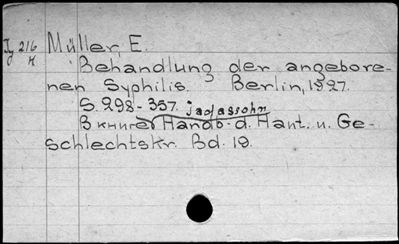 Ig 216 Müller, E.
K
Behandlung der angebore-
nen Syphilis. Berlin, 1927.
S. 298-357. Jadassohn
В книге Handb. d. Haut. u. Ge-
schlechtskr. Bd. 19.